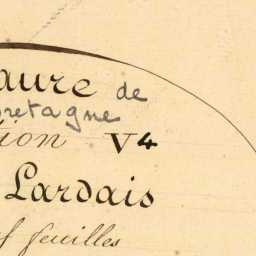 aure de
retagne
tion V4
Lardais
f feuilles